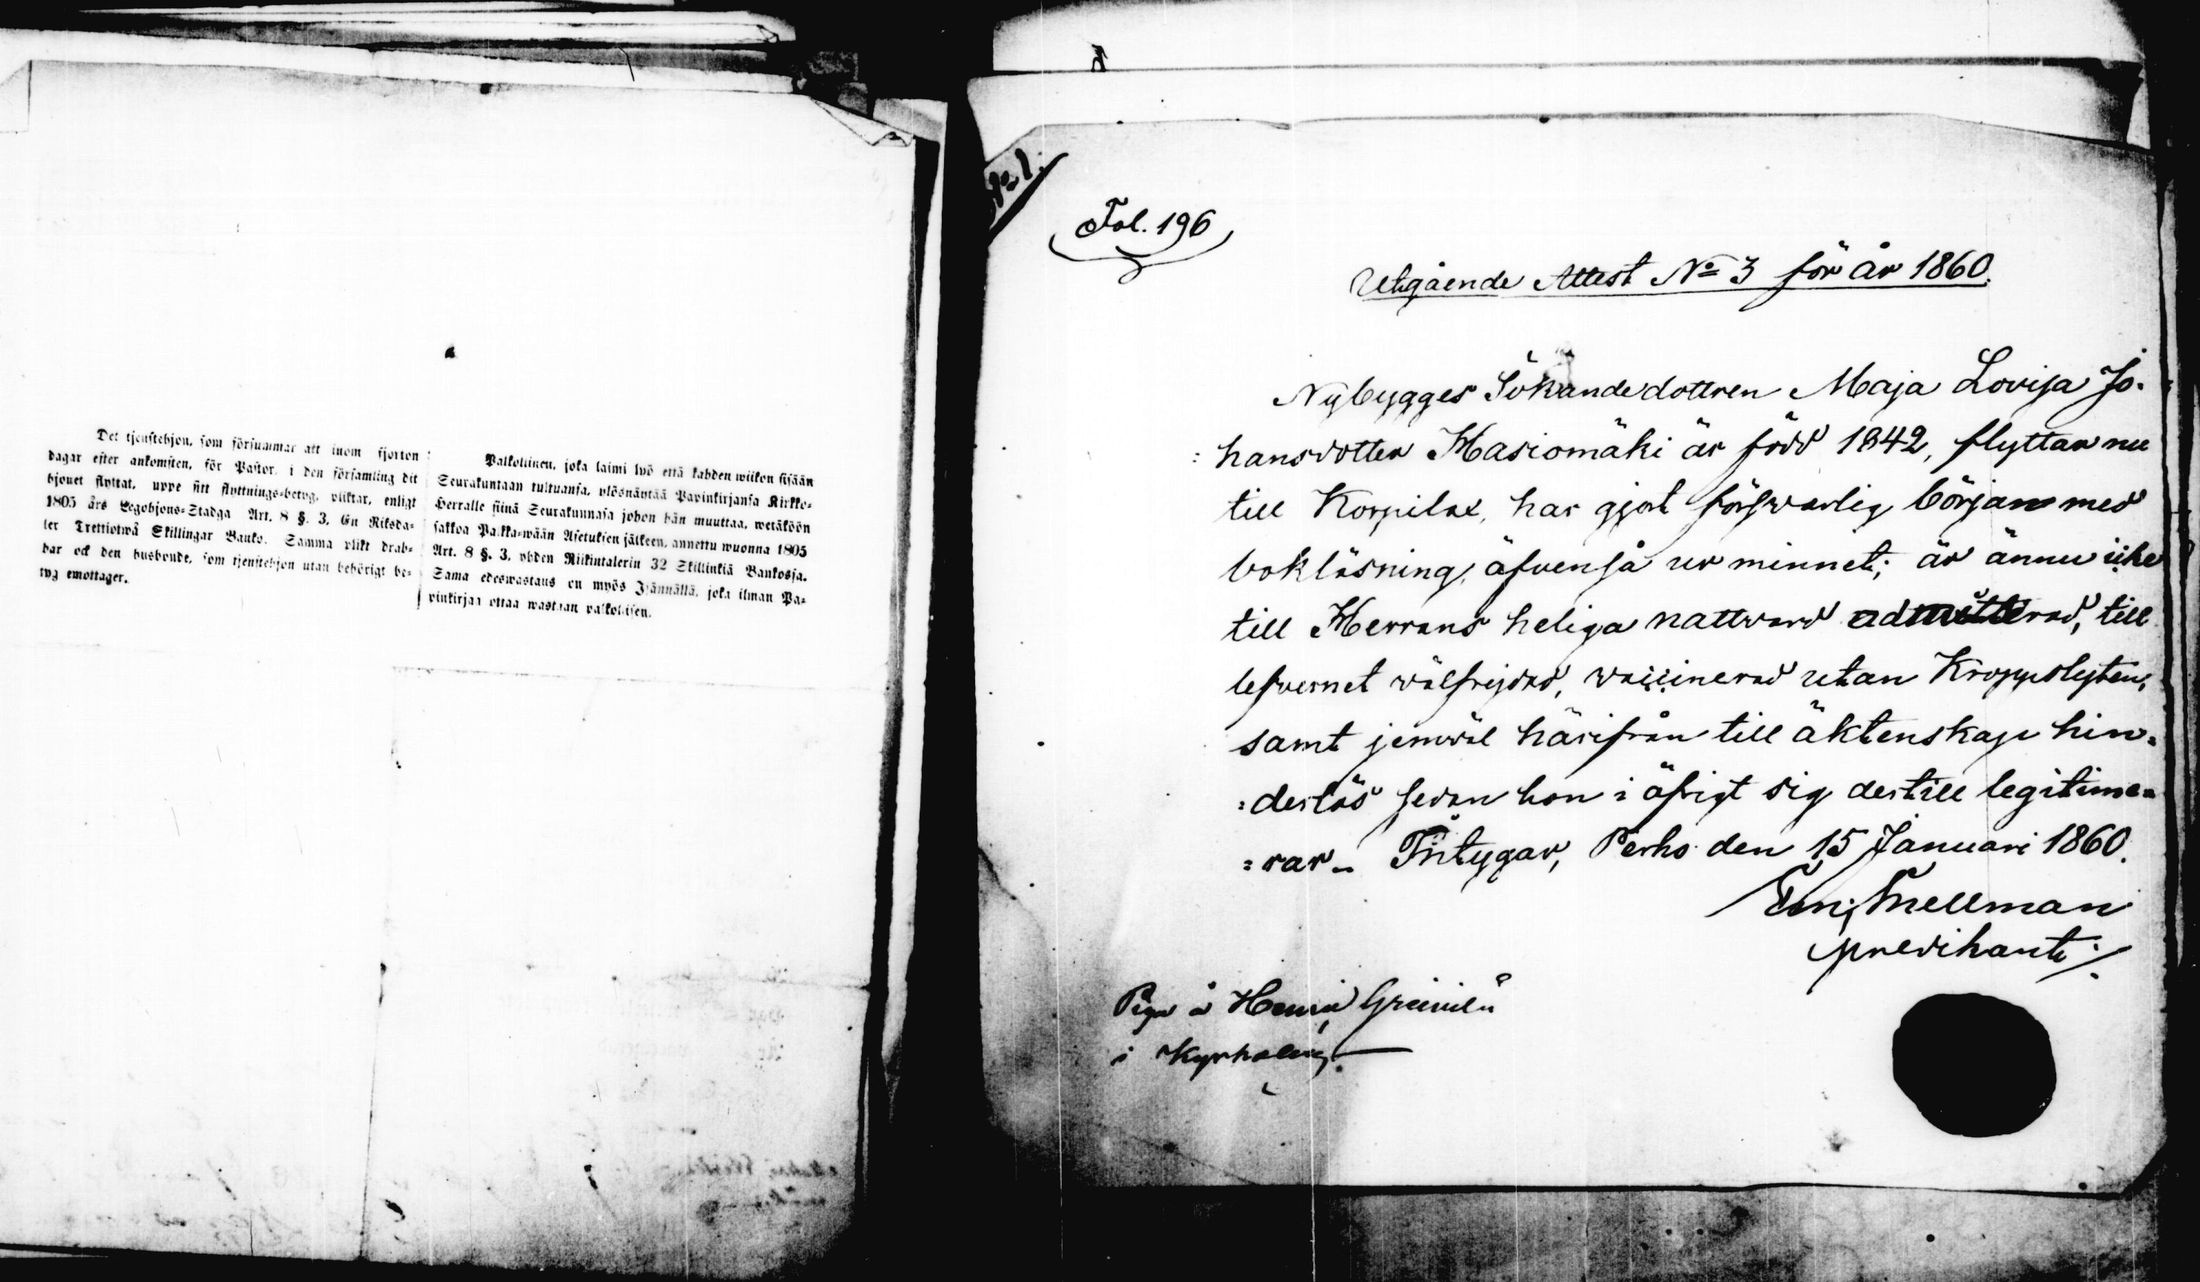 Det tjenstehjon, som försummar att inom fjorton
dagar efter ankomsten, för Pastor i den församling dit
hjonet flyttat, uppe sitt flyttnings-betyg, pliktar, enligt
1805 års Legohjons-Stadga Art. 8 §. 3. En Riksda-
ler Trettiotwå Skillingar Banko. Samma plikt drab-
bar ock den husbonde, som tjenstehjon utan behörigt be-
tyg emottager.
Palkollinen, joka laimi lyö että kahden wiikon sisään
Seurakuntaan tultuansa, ylösnäytää Papinkirjansa Kirkko-
Herralle siinä Seurakunnasa johon hän muuttaa, wetäköön
sakkoa Palkka-wään Asetuksen jälkeen, annettu wuonna 1805
Art. 8 §. 3. yhden Riikintalerin 32 Skillinkiä Bankosa.
Sama edeswastaus on myös Isännällä, joka ilman Pa-
pinkirjaa ottaa wastaan palkollisen.
No 1.
Fol. 196
Utgående Attest No 3 för år 1860.
Nybygges Sökandedottren Maja Lovisa Jo-
hansdotter Hasiomäki är född 1842, flyttar nu
till Korpilax, har gjort förswarlig början med
bokläsning, äfvenså ur minnet; är ännu icke
till Herrans heliga nattward admitterad, till
lefvernet wälfrejdad, waccinerad utan Kroppslyten,
samt jemwäl härifrån till äktenskap hin-
derlös sedan hon i öfrigt sig dertill legitime-
rar. Intygar, Perho den 15 Januari 1860.
Snellman
predikant
Piga å
i